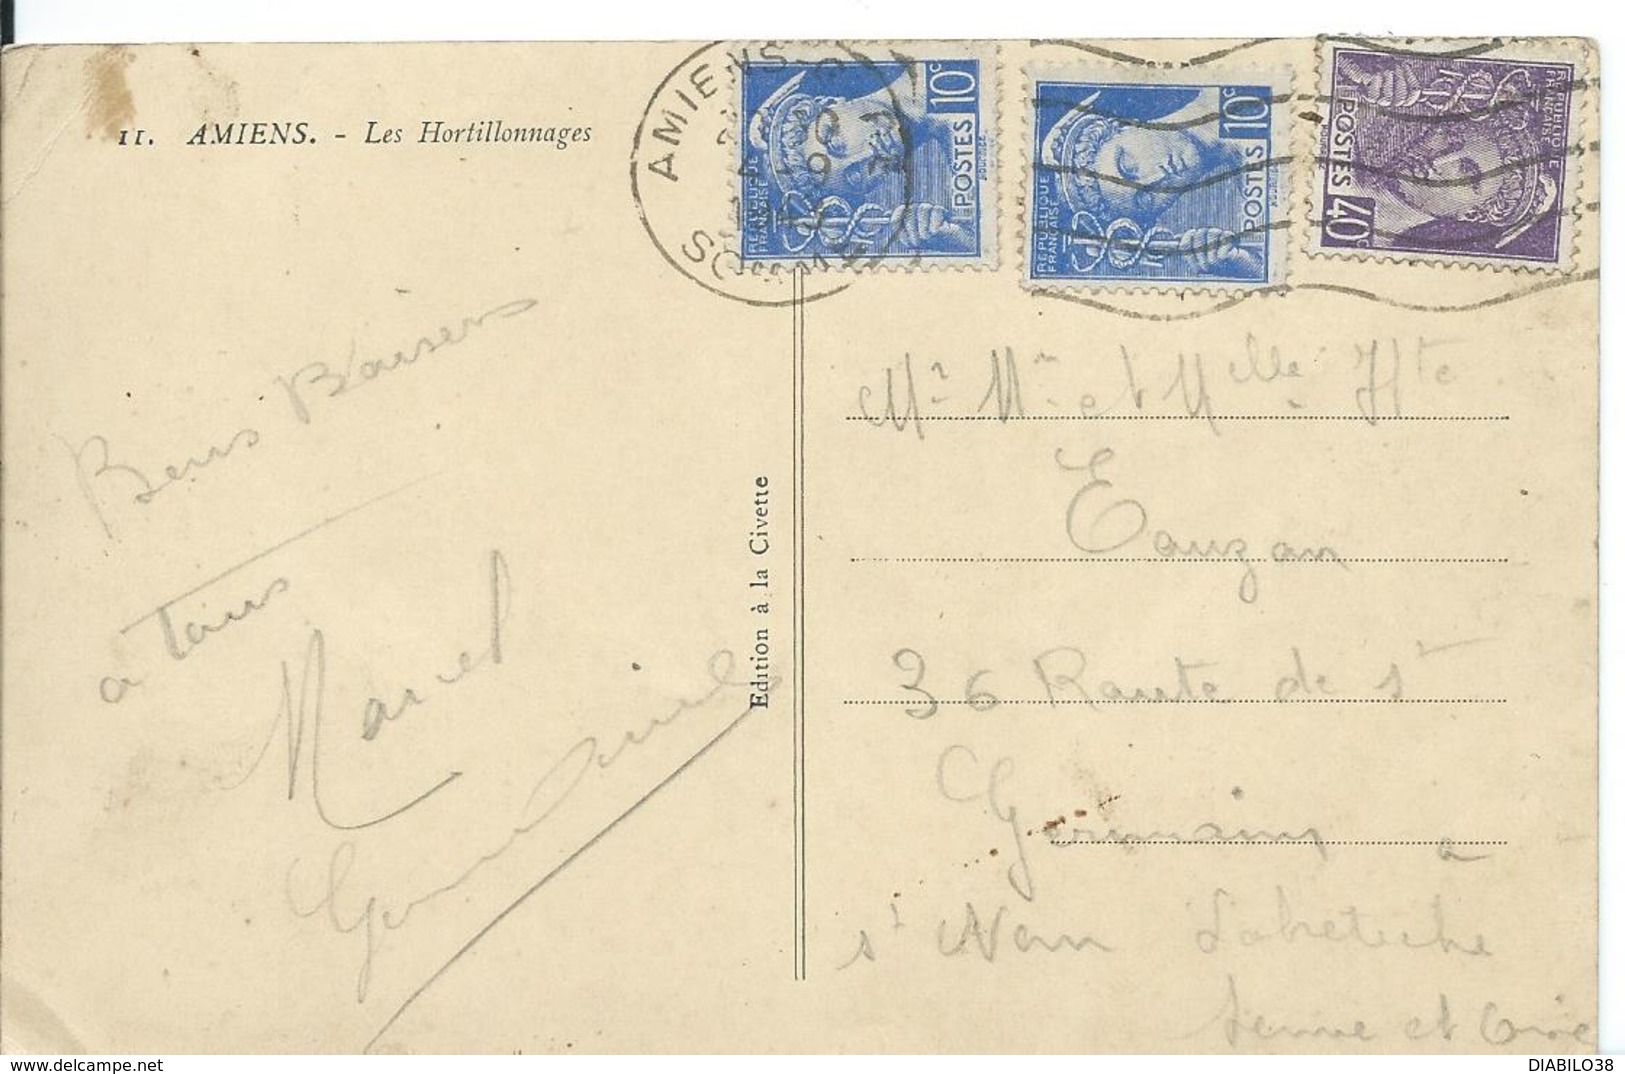 11. AMIENS. - Les Hortillonnages
AMIENS
SOMME
10c
POSTES
RÉPUBLIQUE
FRANÇAISE
10c
POSTES
RÉPUBLIQUE
FRANÇAISE
40c
POSTES
RÉPUBLIQUE
FRANÇAISE
Bons Baisers
a Tous
Marcel
Edition à la Civette
Mr Mme et Melle Hte
Eauzan
36 Route de St
Germain a
St Nom Labreteche
Seine et Oise
DIABILO38